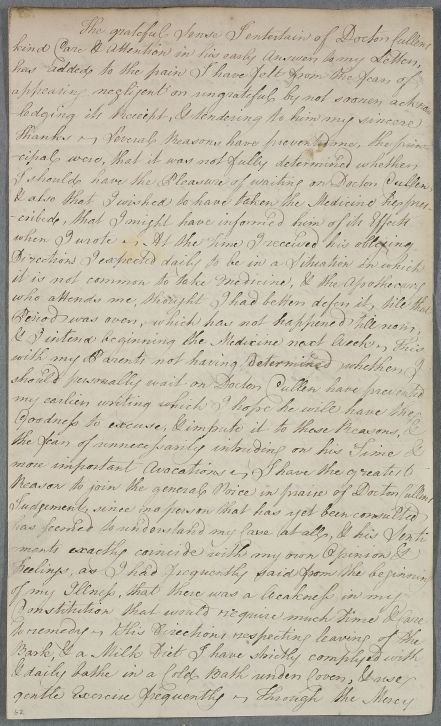 The grateful Sense I entertain of Doctor Cullens
kind Care & Attention in his early Answer to my Letter,
has added to the pain I have felt from the fear of
appearing negligent or ungrateful by not sooner acknow
ledging its Receipt, & tendering to him my sincere
thanks. Several Reasons have prevented me, the prin-
cipal were, that it was not fully determined whether
I should have the Pleasure of waiting on Doctor Cullen,
& also that I wished to have taken the Medicine he pres-
-cribed, that I might have informed him of its Effects
when I wrote. At the time I received his obliging
Directions I expected daily to be in a Situation in which
it is not common to take Medicine, & the Apothecary
who attends me, thought I had better defer it, till that
Period was over, which has not happened till now,
& I intend beginning the Medicine next Week. This
with my Parents not having determined whether I
should personally wait on Doctor Cullen have prevented
my earlier writing which I hope he will have the
Goodness to excuse, & impute it to these Reasons, &
the fear of unnecessarily intruding on his Time &
more important Avocations. I have the greatest
Reason to join the general Voice in praise of Doctor Cullens
Judgement, since no person that has yet been consulted
has seemed to understand my Case at all, & his Senti
ments exactly coincide with my own Opinion &
Feelings, as I had frequently said from the beginning
of my Illness, that there was a Weakness in my
Constitution that would require much Time & Care
to remedy. His Directions respecting leaving of the
Bark, & a Milk Diet I have strictly complyed with
& daily bathe in a Cold Bath under Cover, & use
gentle Exercise frequently. Through the Mercy